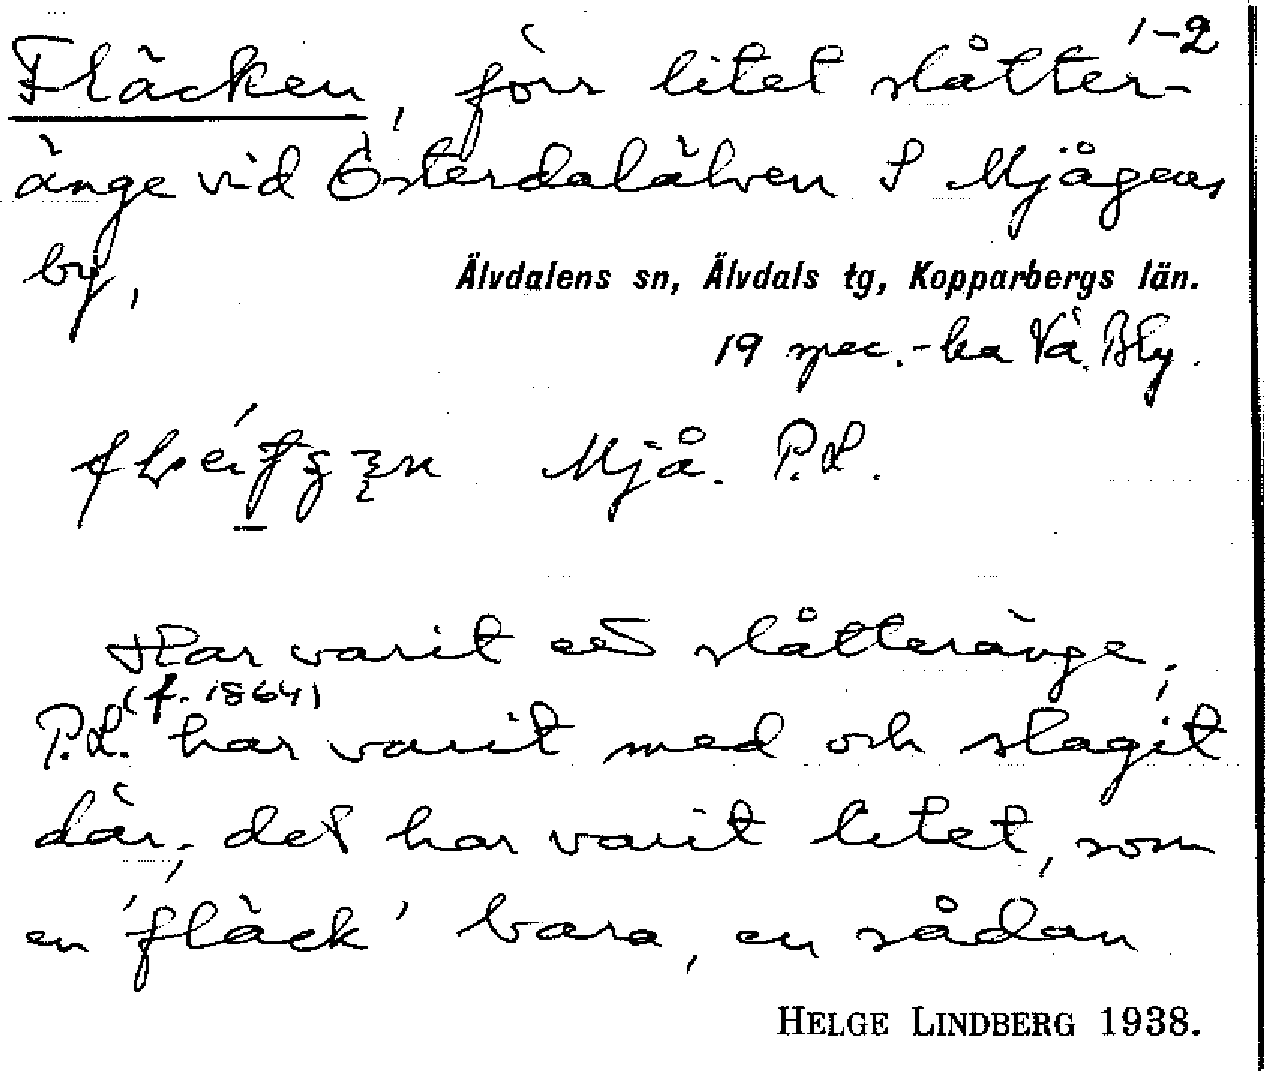 1-2
Fläcken, förr litet slåtter-
änge vid Österdalälven S Mjågens
by,
Älvdalens sn, Älvdals tg, Kopparbergs län.
19 spec.-ka Vä. Bly.
Mjå. P.L.
Har varit ett slåtteränge;
(f. 1864)
P.L. har varit med och slagit
där; det har varit litet, som
en 'fläck' bara, en sådan
HELGE LINDBERG 1938.